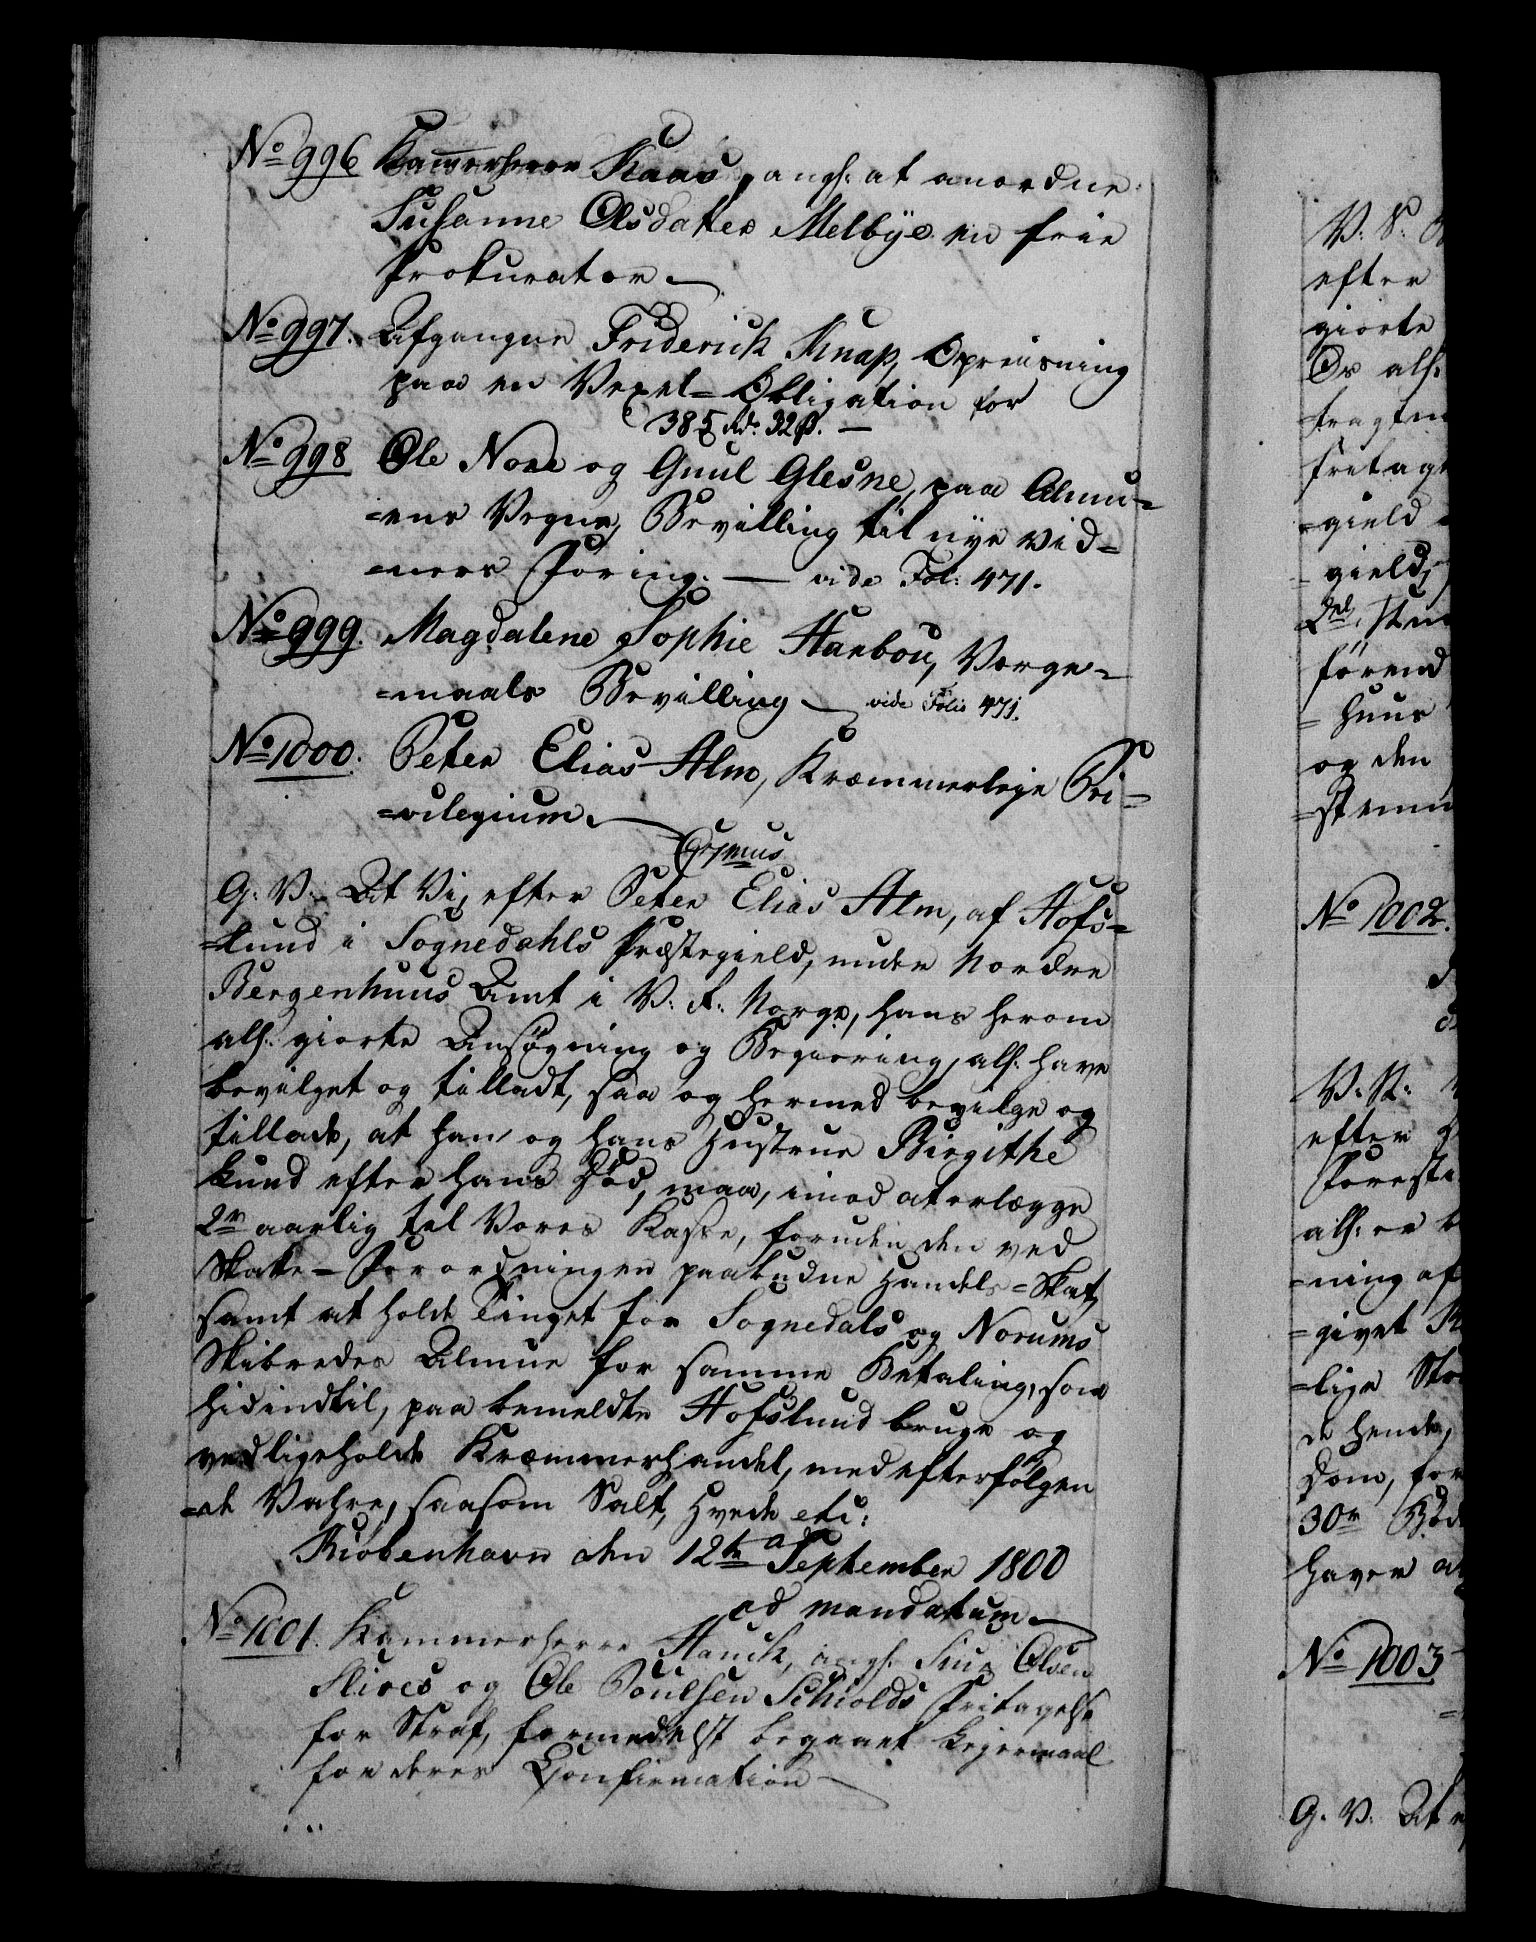 No 996 Kammerherre Kaas, angl: at anordne
Susanne Olsdatter Melbye en frie
Prokurator.
No 997. Afgangne Friderich Knap, Opreisning
paa en Vexel=Obligation for
385 rd. 32 ß. —
No 998 Ole Nore og Gunl Glesne, paa Almu=
=ens Vegne, Bevilling til nye Vid=
=ners Føring. — vide Fol: 471.
No 999. Magdalene Sophie Harbou, Værge=
=maals Bevilling — vide Folio 471.
No 1000. Peter Elias Alm, Kræmmerleje Pri=
=vilegium.
G: V: At Vi, efter Peter Elias Alm, af Hofs=
=lund i Sognedahls Præstegield, under Nordre
Bergenhuus Amt i V: R: Norge, hans herom
all: giorte Ansøgning og Begiering, all: have
bevilget og tilladt, saa og hermed bevilge og
tillade, at han og hans Hustrue Birgithe
Lund efter hans Død, maa, imod at erlægge
2 rd aarlig til Vores Kasse, foruden den ved
Skatte=Forordningen paabudne Handels=Skat,
samt at holde Tinget for Sognedals og Norums
Skibredes Almue for samme Betaling, som
hidindtil, paa bemeldte Hofslund bruge og
vedligeholde Kræmmerhandel, med efterfølgen
=de Vahre, saasom Salt, Hvede etc:
Kiøbenhavn den 12te September 1800
ad mandatum.
No 1001. Kammerherre Hauch, angl: Siur Olsen
Slires og Ole Poulsen Schiolds Fritagelse
for Straf, formedelst begaaet Leiermaal
for deres Confirmation
V: S:
efter
giorte
Os all:
=gield
gield,
førend
= huus
og den
No 1002.
V: St:
efter
Foresti
all: er b
=ning af
=givet
=lige
de hende,
Dom, for
30 rd
haver
No 1003
G: V: At